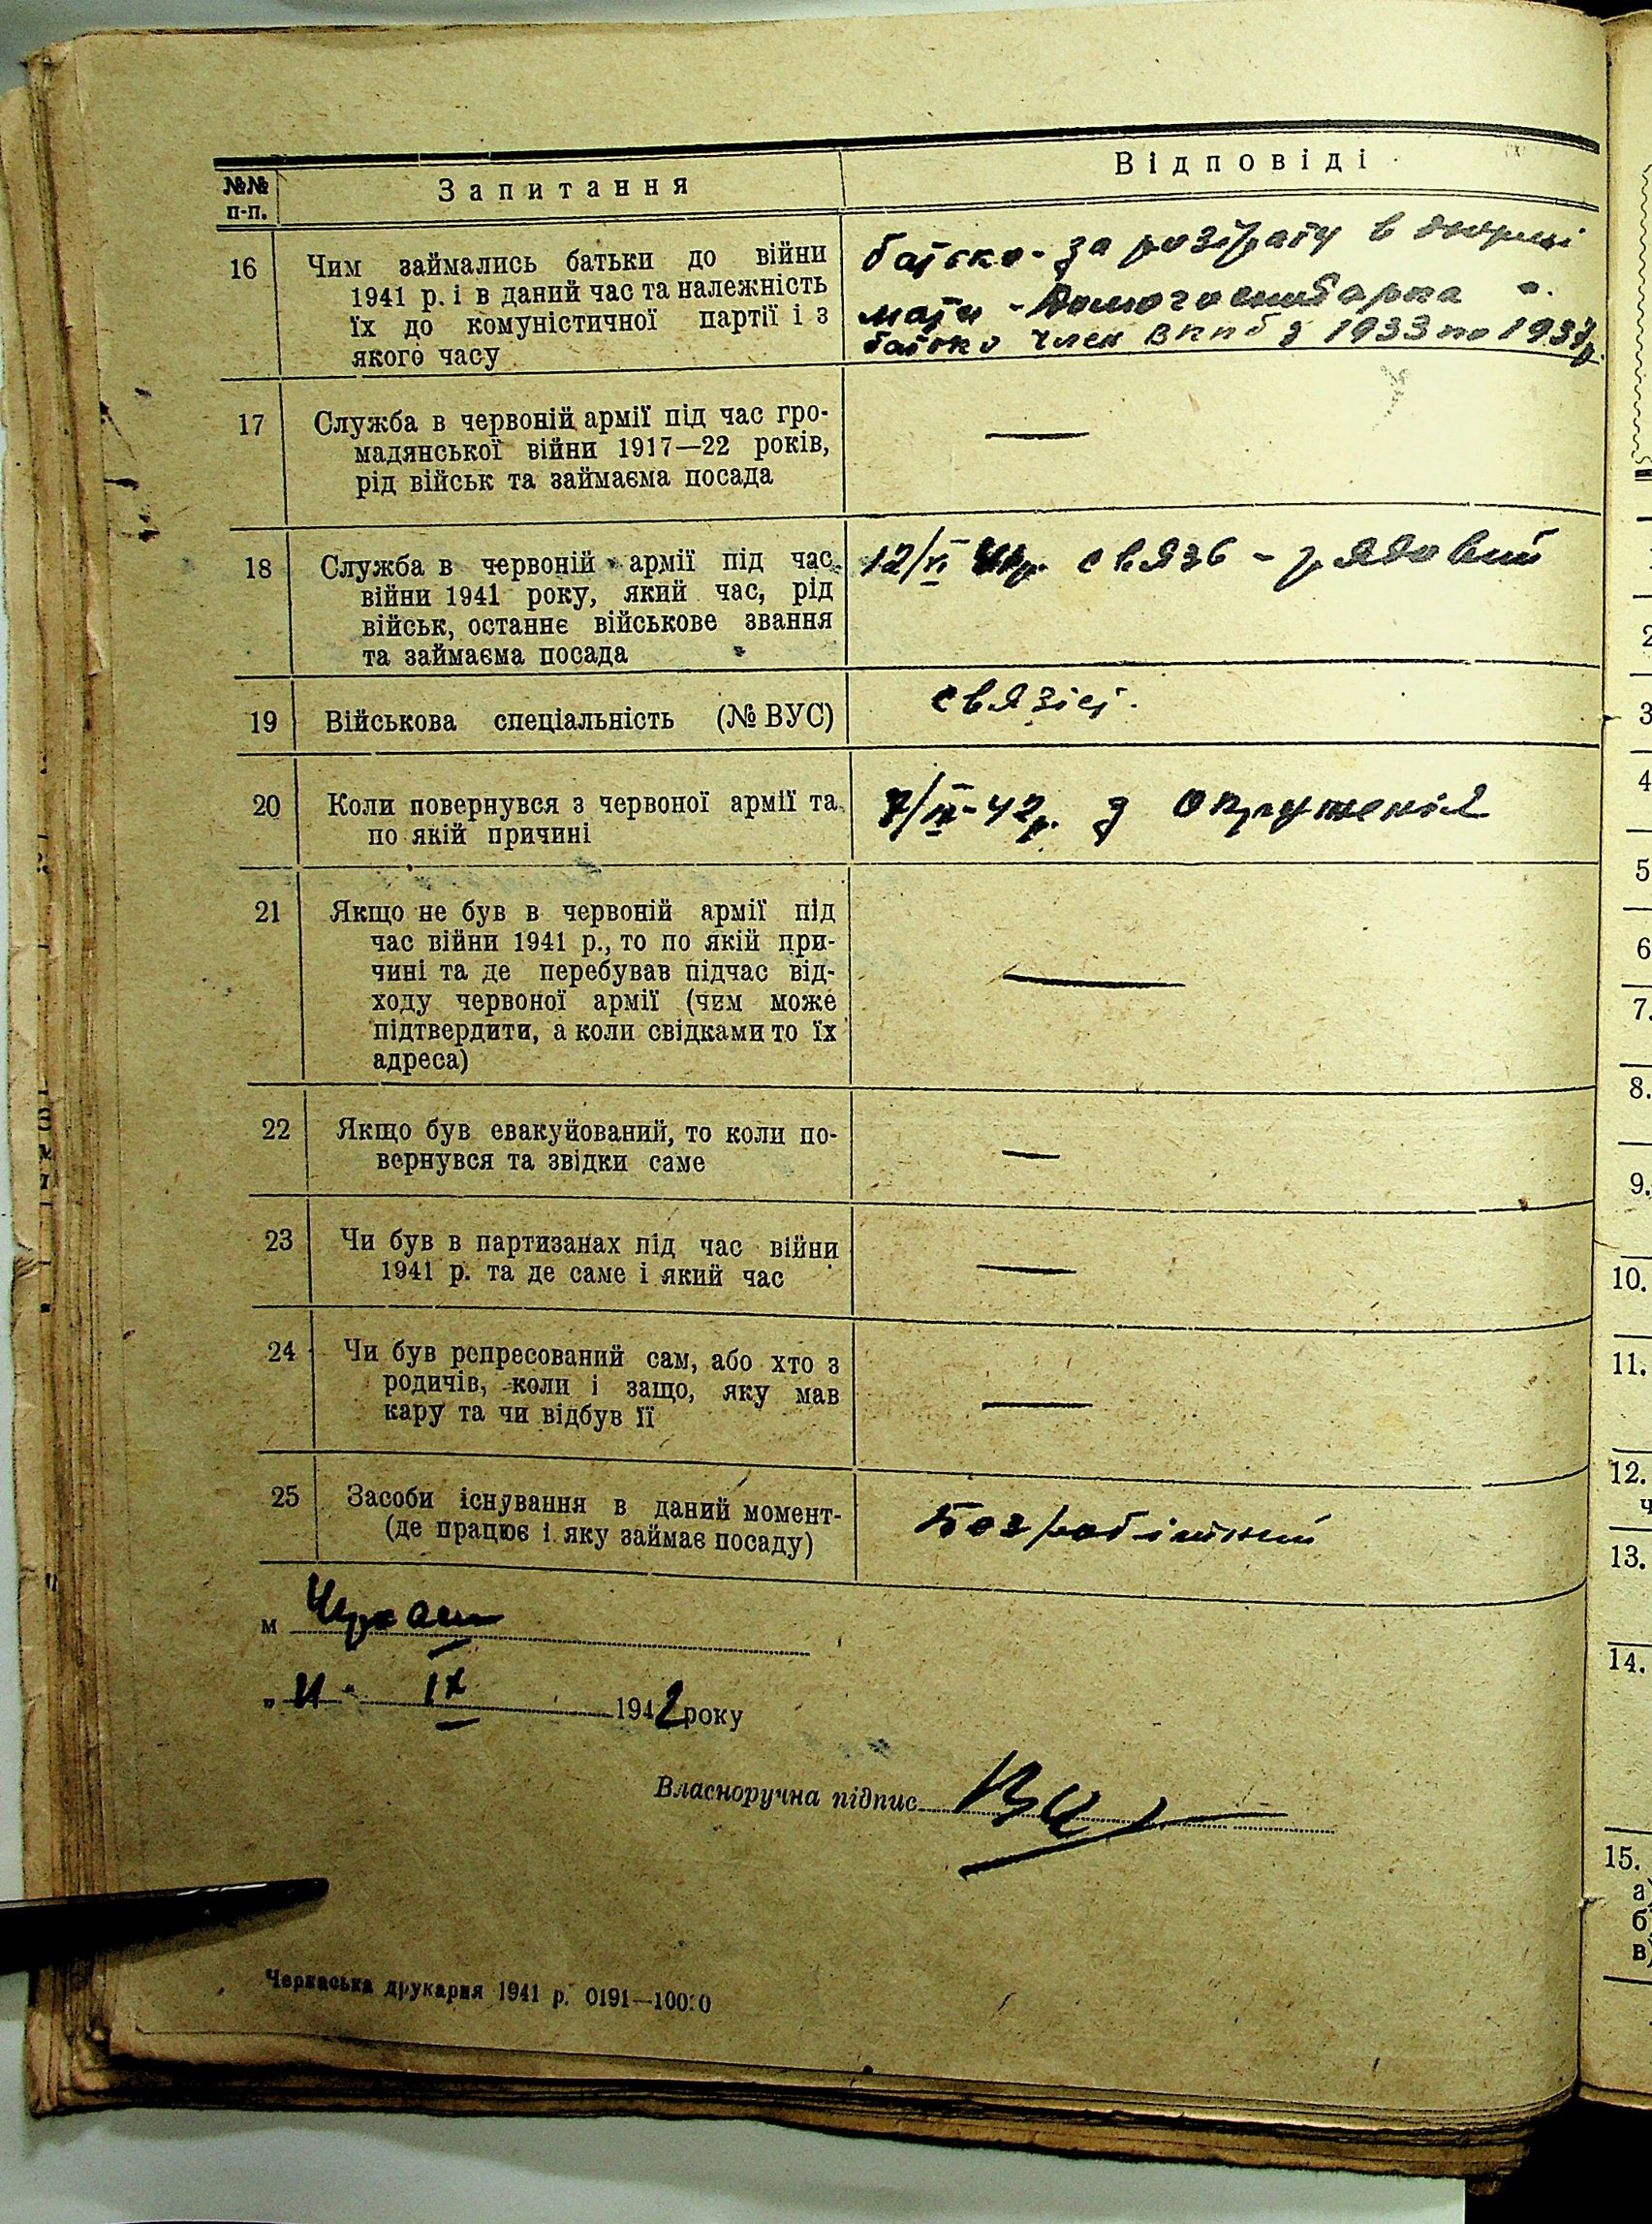 №№ п-п.
Запитання
Відповіді
16
Чим займались батьки до війни
1941 р. і в даний час та належність
їх до комуністичної партії і з
якого часу
батько - за розтрату в
мати - домогосподарка
батько член ВКПб з 1933 по 1937р.
17
Служба в червоній армії під час гро-
мадянської війни 1917—22 років,
рід військ та займаєма посада
—
18
Служба в червоній армії під час
війни 1941 року, який час, рід
військ, останнє військове звання
та займаєма посада
связь - рядовий
19
Військова спеціальність (№ ВУС)
связіст.
20
Коли повернувся з червоної армії та
по якій причині
42р. з окруженія
21
Якщо не був в червоній армії під
час війни 1941 р., то по якій при-
чині та де перебував підчас від-
ходу червоної армії (чим може
підтвердити, а коли свідками то їх
адреса)
—
22
Якщо був евакуйований, то коли по-
вернувся та звідки саме
—
23
Чи був в партизанах під час війни
1941 р. та де саме і який час
—
24
Чи був репресований сам, або хто з
родичів, коли і защо, яку мав
кару та чи відбув її
—
25
Засоби існування в даний момент-
(де працює і яку займає посаду)
Безробітний
м Черкаси
„ 11 “ IX 1942 року
Власноручна підпис
Черкаська друкарня 1941 р. 0191—10000
2
3
4
5
6
7.
8.
9.
10.
11.
12.
ч
13.
14.
15.
а)
б)
в)